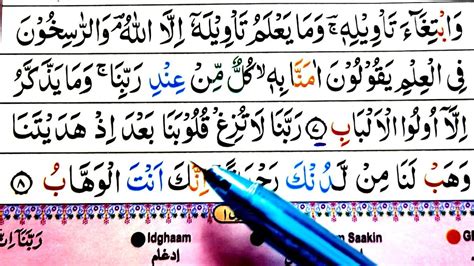 وَابْتِغَآءَ تَاْوِيْلِهٖ ۚ وَمَا يَعْلَمُ تَاْوِيْلَهٗٓ اِلَّا اللّٰهُ ۘ وَالرّٰسِخُوْنَ
فِى الْعِلْمِ يَقُوْلُوْنَ اٰمَنَّا بِهٖ ۙ كُلٌّ مِّنْ عِنْدِ رَبِّنَا ۚ وَمَا يَذَّكَّرُ
اِلَّآ اُولُوا الْاَلْبَابِ ٧ رَبَّنَا لَا تُزِغْ قُلُوْبَنَا بَعْدَ اِذْ هَدَيْتَنَا
وَهَبْ لَنَا مِنْ لَّدُنْكَ اِنَّكَ اَنْتَ الْوَهَّابُ ٨
Idghaam
ادغام
Saakin
رَبَّنَآ